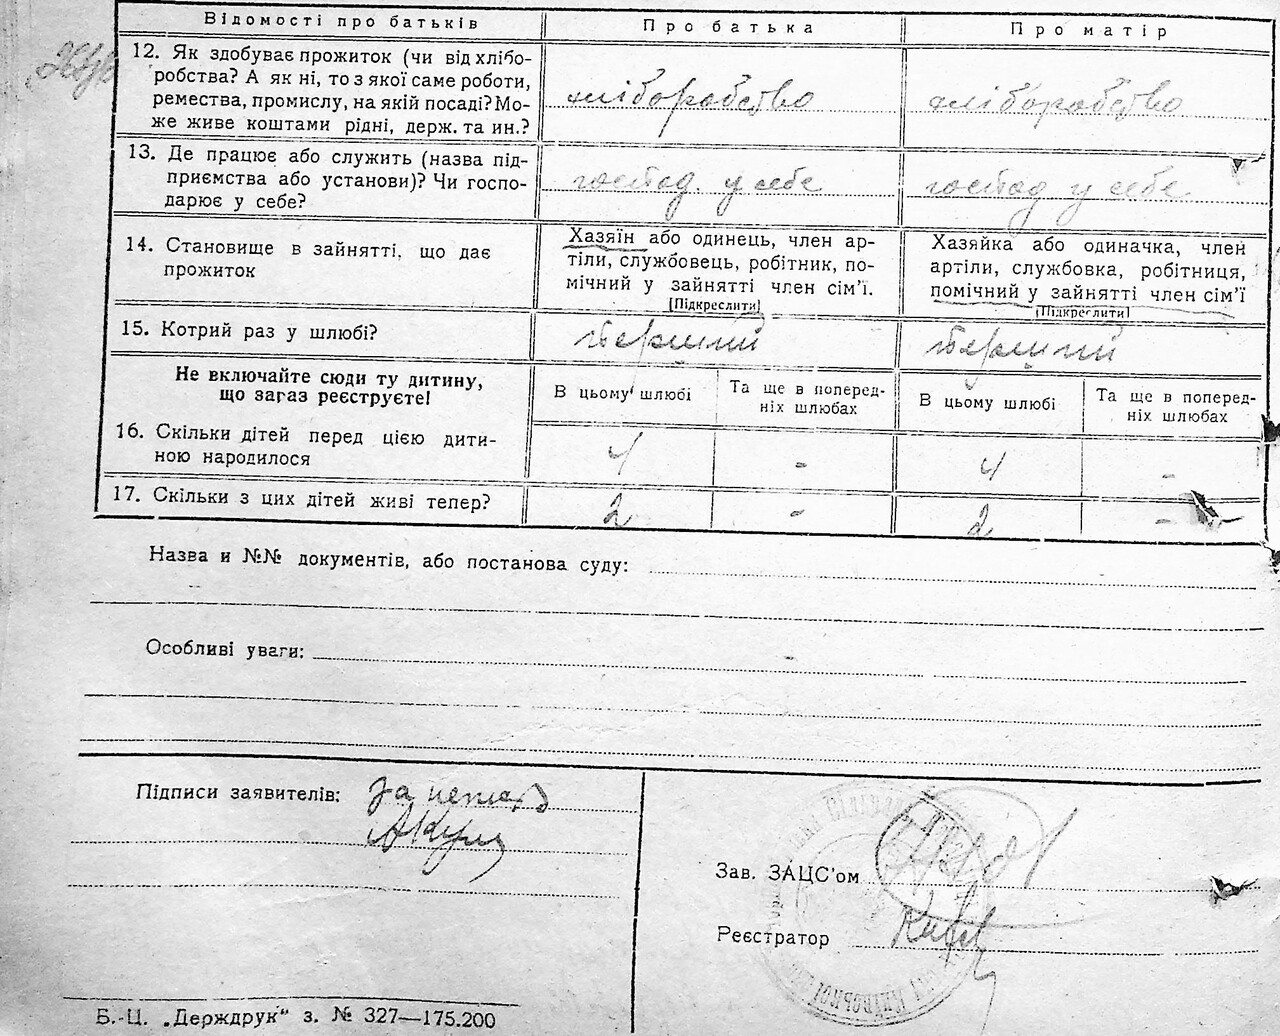 Відомості про батьків
Про батька
Про матір
12. Як здобуває прожиток (чи від хлібо-
робства? А як ні, то з якої саме роботи,
ремества, промислу, на якій посаді? Мо-
же живе коштами рідні, держ. та ин.?
хліборобство
хліборобство
13. Де працює або служить (назва під-
приємства або установи)? Чи госпо-
дарює у себе?
господ. у себе
господ у себе
14. Становище в зайнятті, що дає
прожиток
Хазяїн або одинець, член ар-
тіли, службовець, робітник, по-
мічний у зайнятті член сім'ї.
[Підкреслити]
Хазяйка або одиначка, член
артіли, службовка, робітниця,
помічний у зайнятті член сім'ї
[Підкреслити]
15. Котрий раз у шлюбі?
перший
перший
Не включайте сюди ту дитину,
що загаз реєструєте!
В цьому шлюбі
Та ще в поперед-
ніх шлюбах
В цьому шлюбі
Та ще в поперед-
ніх шлюбах
16. Скільки дітей перед цією дити-
ною народилося
4
-
4
-
17. Скільки з цих дітей живі тепер?
2
-
2
-
Назва и №№ документів, або постанова суду:
Особливі уваги:
Підписи заявителів: За
Зав. ЗАЦС'ом
Реєстратор
Б.-Ц. „Держдрук" з. № 327—175.200